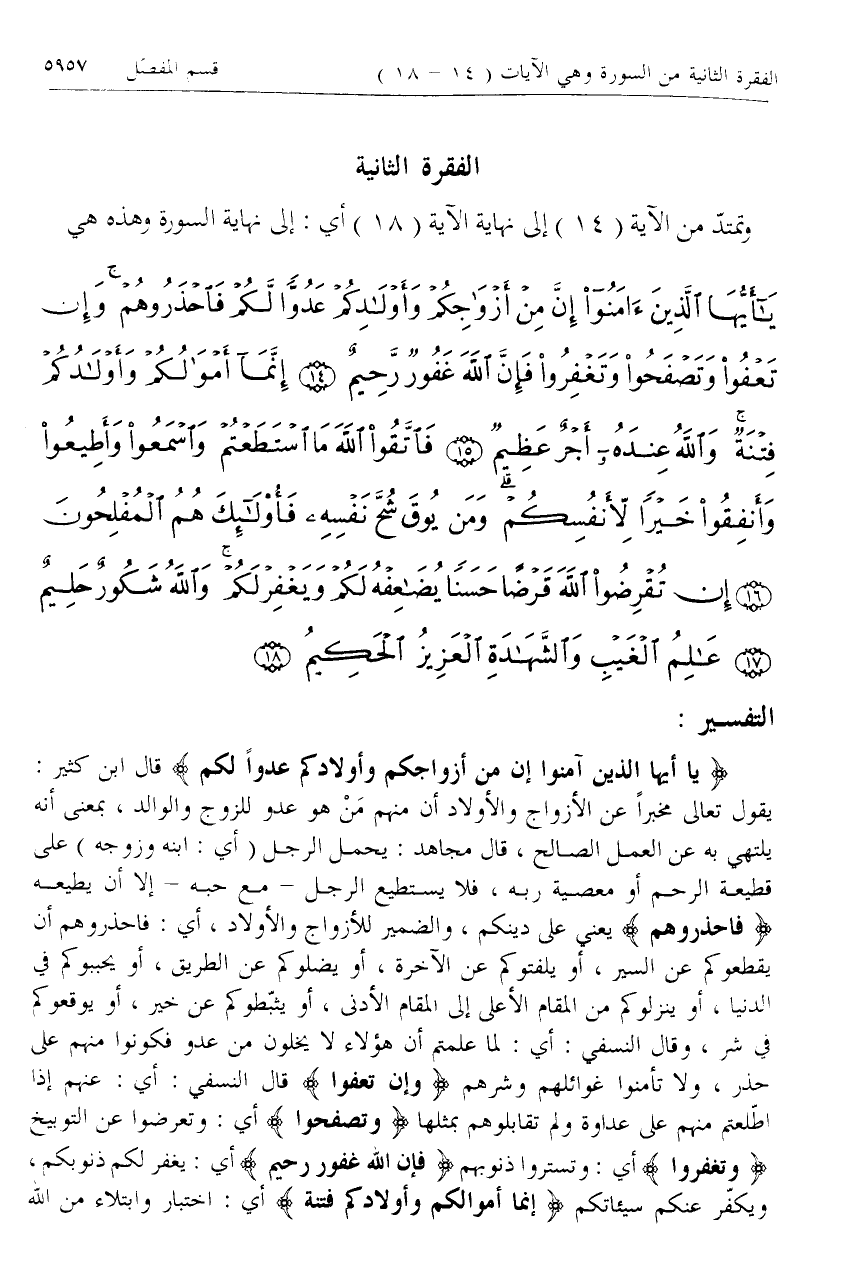 الفقرة الثانية من السورة وهي الآيات ( ١٤ – ١٨ ) قسم المفصّل ٥٩٥٧
الفقرة الثانية
وتمتدّ من الآية ( ١٤ ) إلى نهاية الآية ( ١٨ ) أي : إلى نهاية السورة وهذه هي
يَـٰٓأَيُّهَا ٱلَّذِينَ ءَامَنُوٓا۟ إِنَّ مِنْ أَزْوَٰجِكُمْ وَأَوْلَـٰدِكُمْ عَدُوًّا لَّكُمْ فَٱحْذَرُوهُمْ ۚ وَإِن
تَعْفُوا۟ وَتَصْفَحُوا۟ وَتَغْفِرُوا۟ فَإِنَّ ٱللَّهَ غَفُورٌ رَّحِيمٌ ١٤ إِنَّمَآ أَمْوَٰلُكُمْ وَأَوْلَـٰدُكُمْ
فِتْنَةٌ ۚ وَٱللَّهُ عِندَهُۥٓ أَجْرٌ عَظِيمٌ ١٥ فَٱتَّقُوا۟ ٱللَّهَ مَا ٱسْتَطَعْتُمْ وَٱسْمَعُوا۟ وَأَطِيعُوا۟
وَأَنفِقُوا۟ خَيْرًا لِّأَنفُسِكُمْ ۗ وَمَن يُوقَ شُحَّ نَفْسِهِۦ فَأُو۟لَـٰٓئِكَ هُمُ ٱلْمُفْلِحُونَ
١٦ إِن تُقْرِضُوا۟ ٱللَّهَ قَرْضًا حَسَنًا يُضَـٰعِفْهُ لَكُمْ وَيَغْفِرْ لَكُمْ ۚ وَٱللَّهُ شَكُورٌ حَلِيمٌ
١٧ عَـٰلِمُ ٱلْغَيْبِ وَٱلشَّهَـٰدَةِ ٱلْعَزِيزُ ٱلْحَكِيمُ ١٨
التفسير :
﴿ يا أيها الذين آمنوا إن من أزواجكم وأولادكم عدواً لكم ﴾ قال ابن كثير :
يقول تعالى مخبراً عن الأزواج والأولاد أن منهم مَنْ هو عدو للزوج والوالد ، بمعنى أنه
يلتهي به عن العمل الصالح ، قال مجاهد : يحمل الرجل ( أي : ابنه وزوجه ) على
قطيعة الرحم أو معصية ربه ، فلا يستطيع الرجل – مع حبه – إلا أن يطيعه
﴿ فاحذروهم ﴾ يعني على دينكم ، والضمير للأزواج والأولاد ، أي : فاحذروهم أن
يقطعوكم عن السير ، أو يلفتوكم عن الآخرة ، أو يضلوكم عن الطريق ، أو يحببوكم في
الدنيا ، أو ينزلوكم من المقام الأعلى إلى المقام الأدنى ، أو يثبّطوكم عن خير ، أو يوقعوكم
في شر ، وقال النسفي : أي : لما علمتم أن هؤلاء لا يخلون من عدو فكونوا منهم على
حذر ، ولا تأمنوا غوائلهم وشرهم ﴿ وإن تعفوا ﴾ قال النسفي : أي : عنهم إذا
اطّلعتم منهم على عداوة ولم تقابلوهم بمثلها ﴿ وتصفحوا ﴾ أي : وتعرضوا عن التوبيخ
﴿ وتغفروا ﴾ أي : وتستروا ذنوبهم ﴿ فإن الله غفور رحيم ﴾ أي : يغفر لكم ذنوبكم ،
ويكفّر عنكم سيئاتكم ﴿ إنما أموالكم وأولادكم فتنة ﴾ أي : اختبار وابتلاء من الله